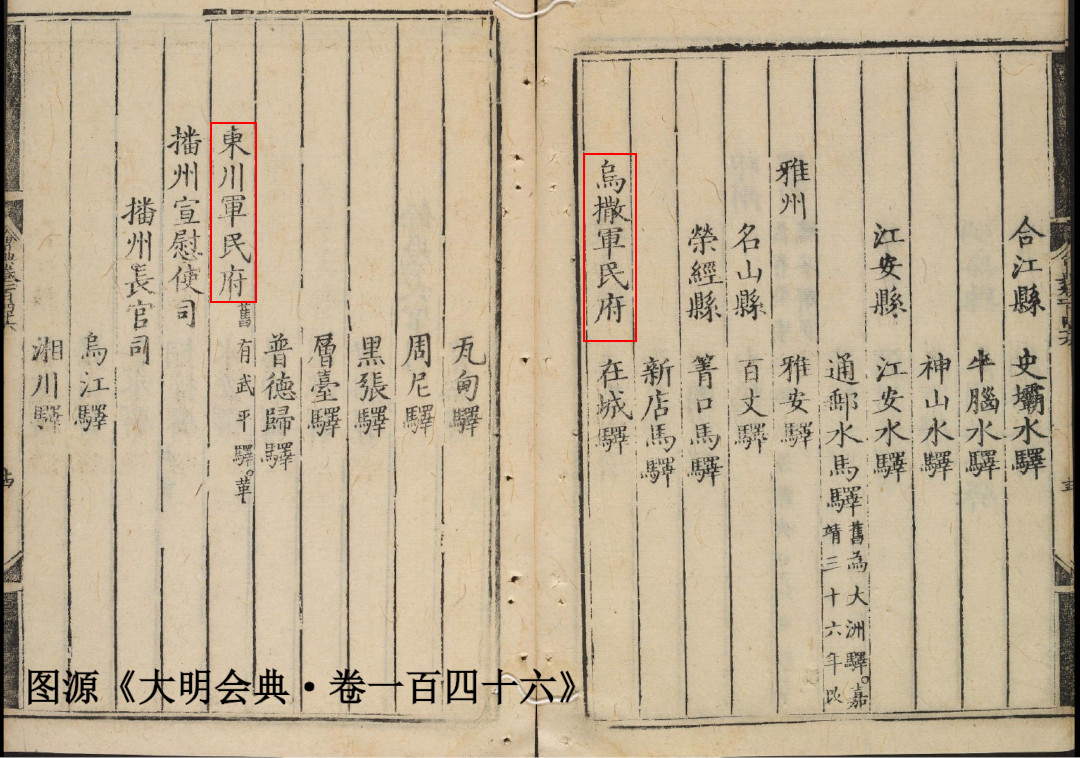 合江縣 史壩水驛
牛腦水驛
神山水驛
江安縣 江安水驛
通郵水馬驛 舊為大洲驛。嘉
靖三十六年改
雅州 雅安驛
名山縣 百丈驛
榮經縣 箐口馬驛
新店馬驛
烏撒軍民府 在城驛
瓦甸驛
周尼驛
黑張驛
層臺驛
普德歸驛
東川軍民府 舊有武平驛。革
播州宣慰使司
播州長官司
烏江驛
湘川驛
图源《大明会典·卷一百四十六》